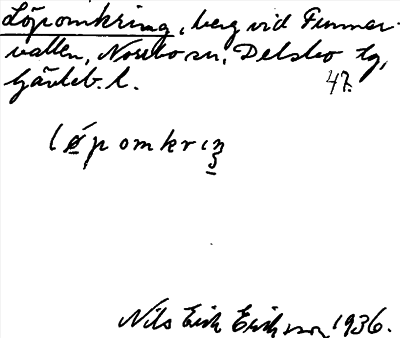 Löpomkring, berg vid Finnar-
vallen, Norrbo sn, Delsbo tg,
Gävleb. l. 47.
löpomkriŋ
Nils Erik Eriksson 1936.